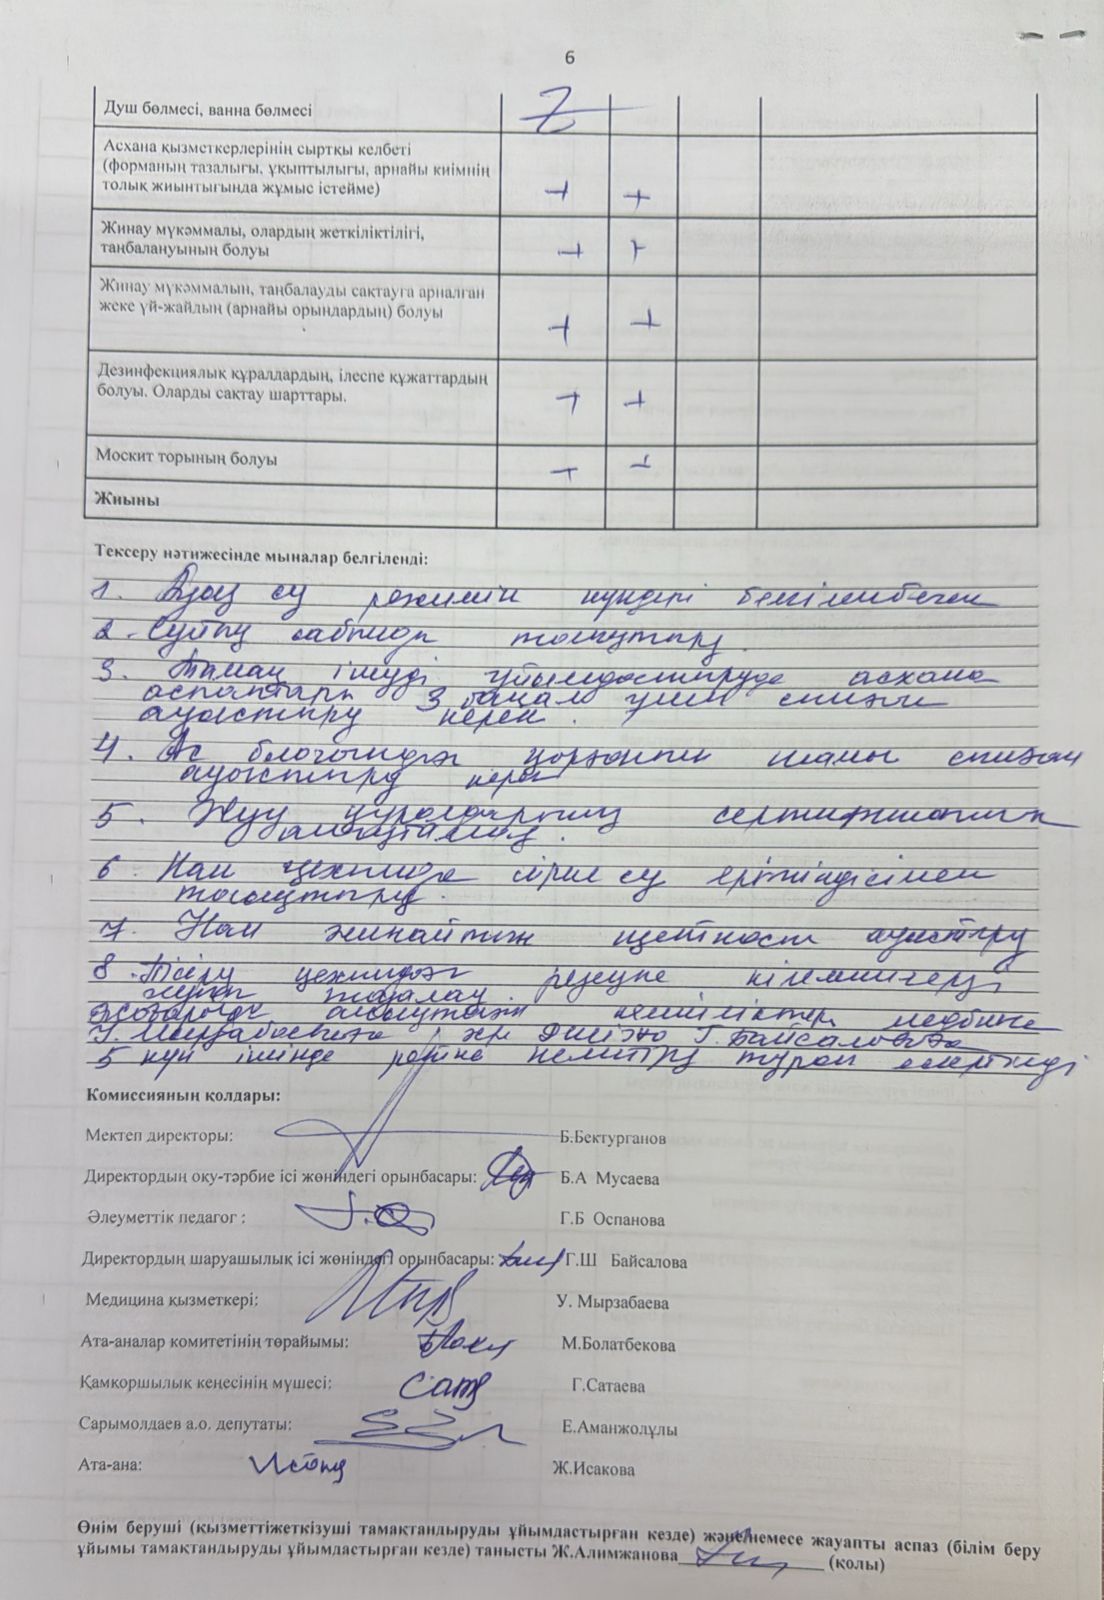 6
Душ бөлмесі, ванна бөлмесі Z
Асхана қызметкерлерінің сыртқы келбеті
(форманың тазалығы, ұқыптылығы, арнайы киімнің
толық жиынтығында жұмыс істейме) + +
Жинау мүкәммалы, олардың жеткіліктілігі,
таңбалануының болуы + +
Жинау мүкәммалын, таңбалауды сақтауға арналған
жеке үй-жайдың (арнайы орындардың) болуы + +
Дезинфекциялық құралдардың, ілеспе құжаттардың
болуы. Оларды сақтау шарттары. + +
Москит торының болуы + +
Жиыны
Тексеру нәтижесінде мыналар белгіленді:
1. су режимін күнделі
2. Сұйық сабынды толықтыру.
3. Тамақ ішуді ұйымдастыруда асхана
аспаптары 3 үшін
ауыстыру керек.
4. Ас блогындағы шамы
ауыстыру керек
5. Жуу құралдарының сертификатын
6. Нан цехында су ерітіндісімен
толықтыру.
7. Нан жинайтын щетканы ауыстыру
8. Пісіру цехындағы резеңке кілемшелерді
жуып тазалау.
жоғарыда кемшіліктер медбике
У. Мырзабаеваға, Г. Байсаловаға
5 күн ішінде ретке келтіру туралы ескертілді
Комиссияның қолдары:
Мектеп директоры: Б.Бектурганов
Директордың оқу-тәрбие ісі жөніндегі орынбасары: Б.А Мусаева
Әлеуметтік педагог : Г.Б Оспанова
Директордың шаруашылық ісі жөніндегі орынбасары: Г.Ш Байсалова
Медицина қызметкері: У. Мырзабаева
Ата-аналар комитетінің төрайымы: М.Болатбекова
Қамқоршылық кеңесінің мүшесі: Г.Сатаева
Сарымолдаев а.о. депутаты: Е.Аманжолұлы
Ата-ана: Ж.Исакова
Өнім беруші (қызметтіжеткізуші тамақтандыруды ұйымдастырған кезде) және/немесе жауапты аспаз (білім беру
ұйымы тамақтандыруды ұйымдастырған кезде) танысты Ж.Алимжанова (қолы)